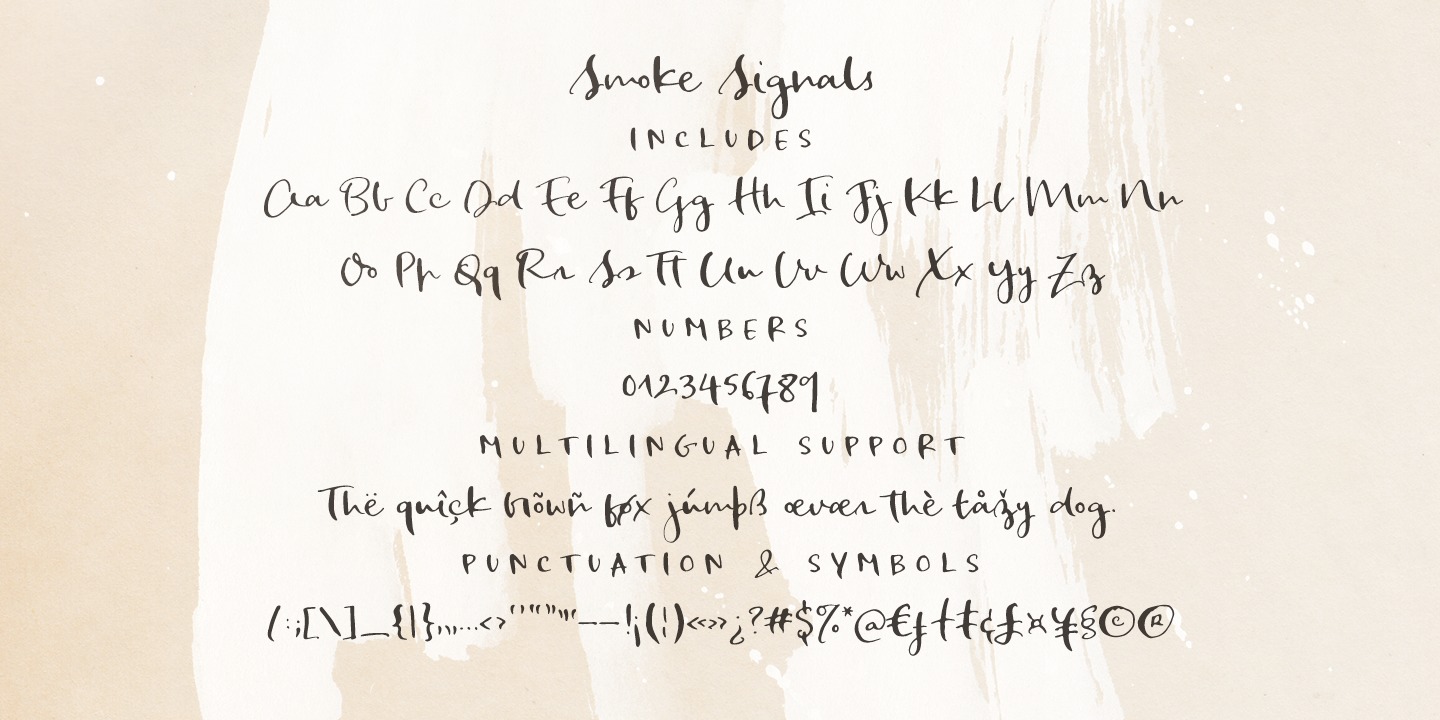 Smoke Signals
INCLUDES
Aa Bb Cc Dd Ee Ff Gg Hh Ii Jj Kk Ll Mm Nn
Oo Pp Qq Rr Ss Tt Uu Vv Ww Xx Yy Zz
NUMBERS
0123456789
MULTILINGUAL SUPPORT
Thë quîçk brõwñ føx júmpß œvœr thè tåžy dog.
PUNCTUATION & SYMBOLS
(:;[\]_{|}‚„,...<>‘’“”"'–—!¡(¦)«»‹›¿?#$%*@€ƒ†‡¢£¤¥§©®